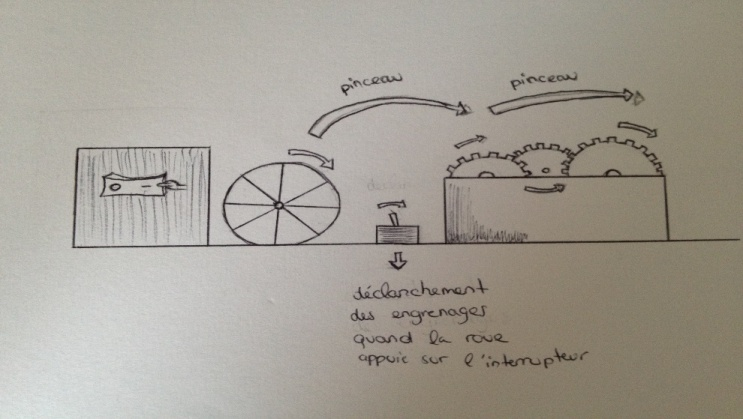 pinceau
pinceau
déclanchement
des engrenages
quand la roue
appuie sur l'interrupteur